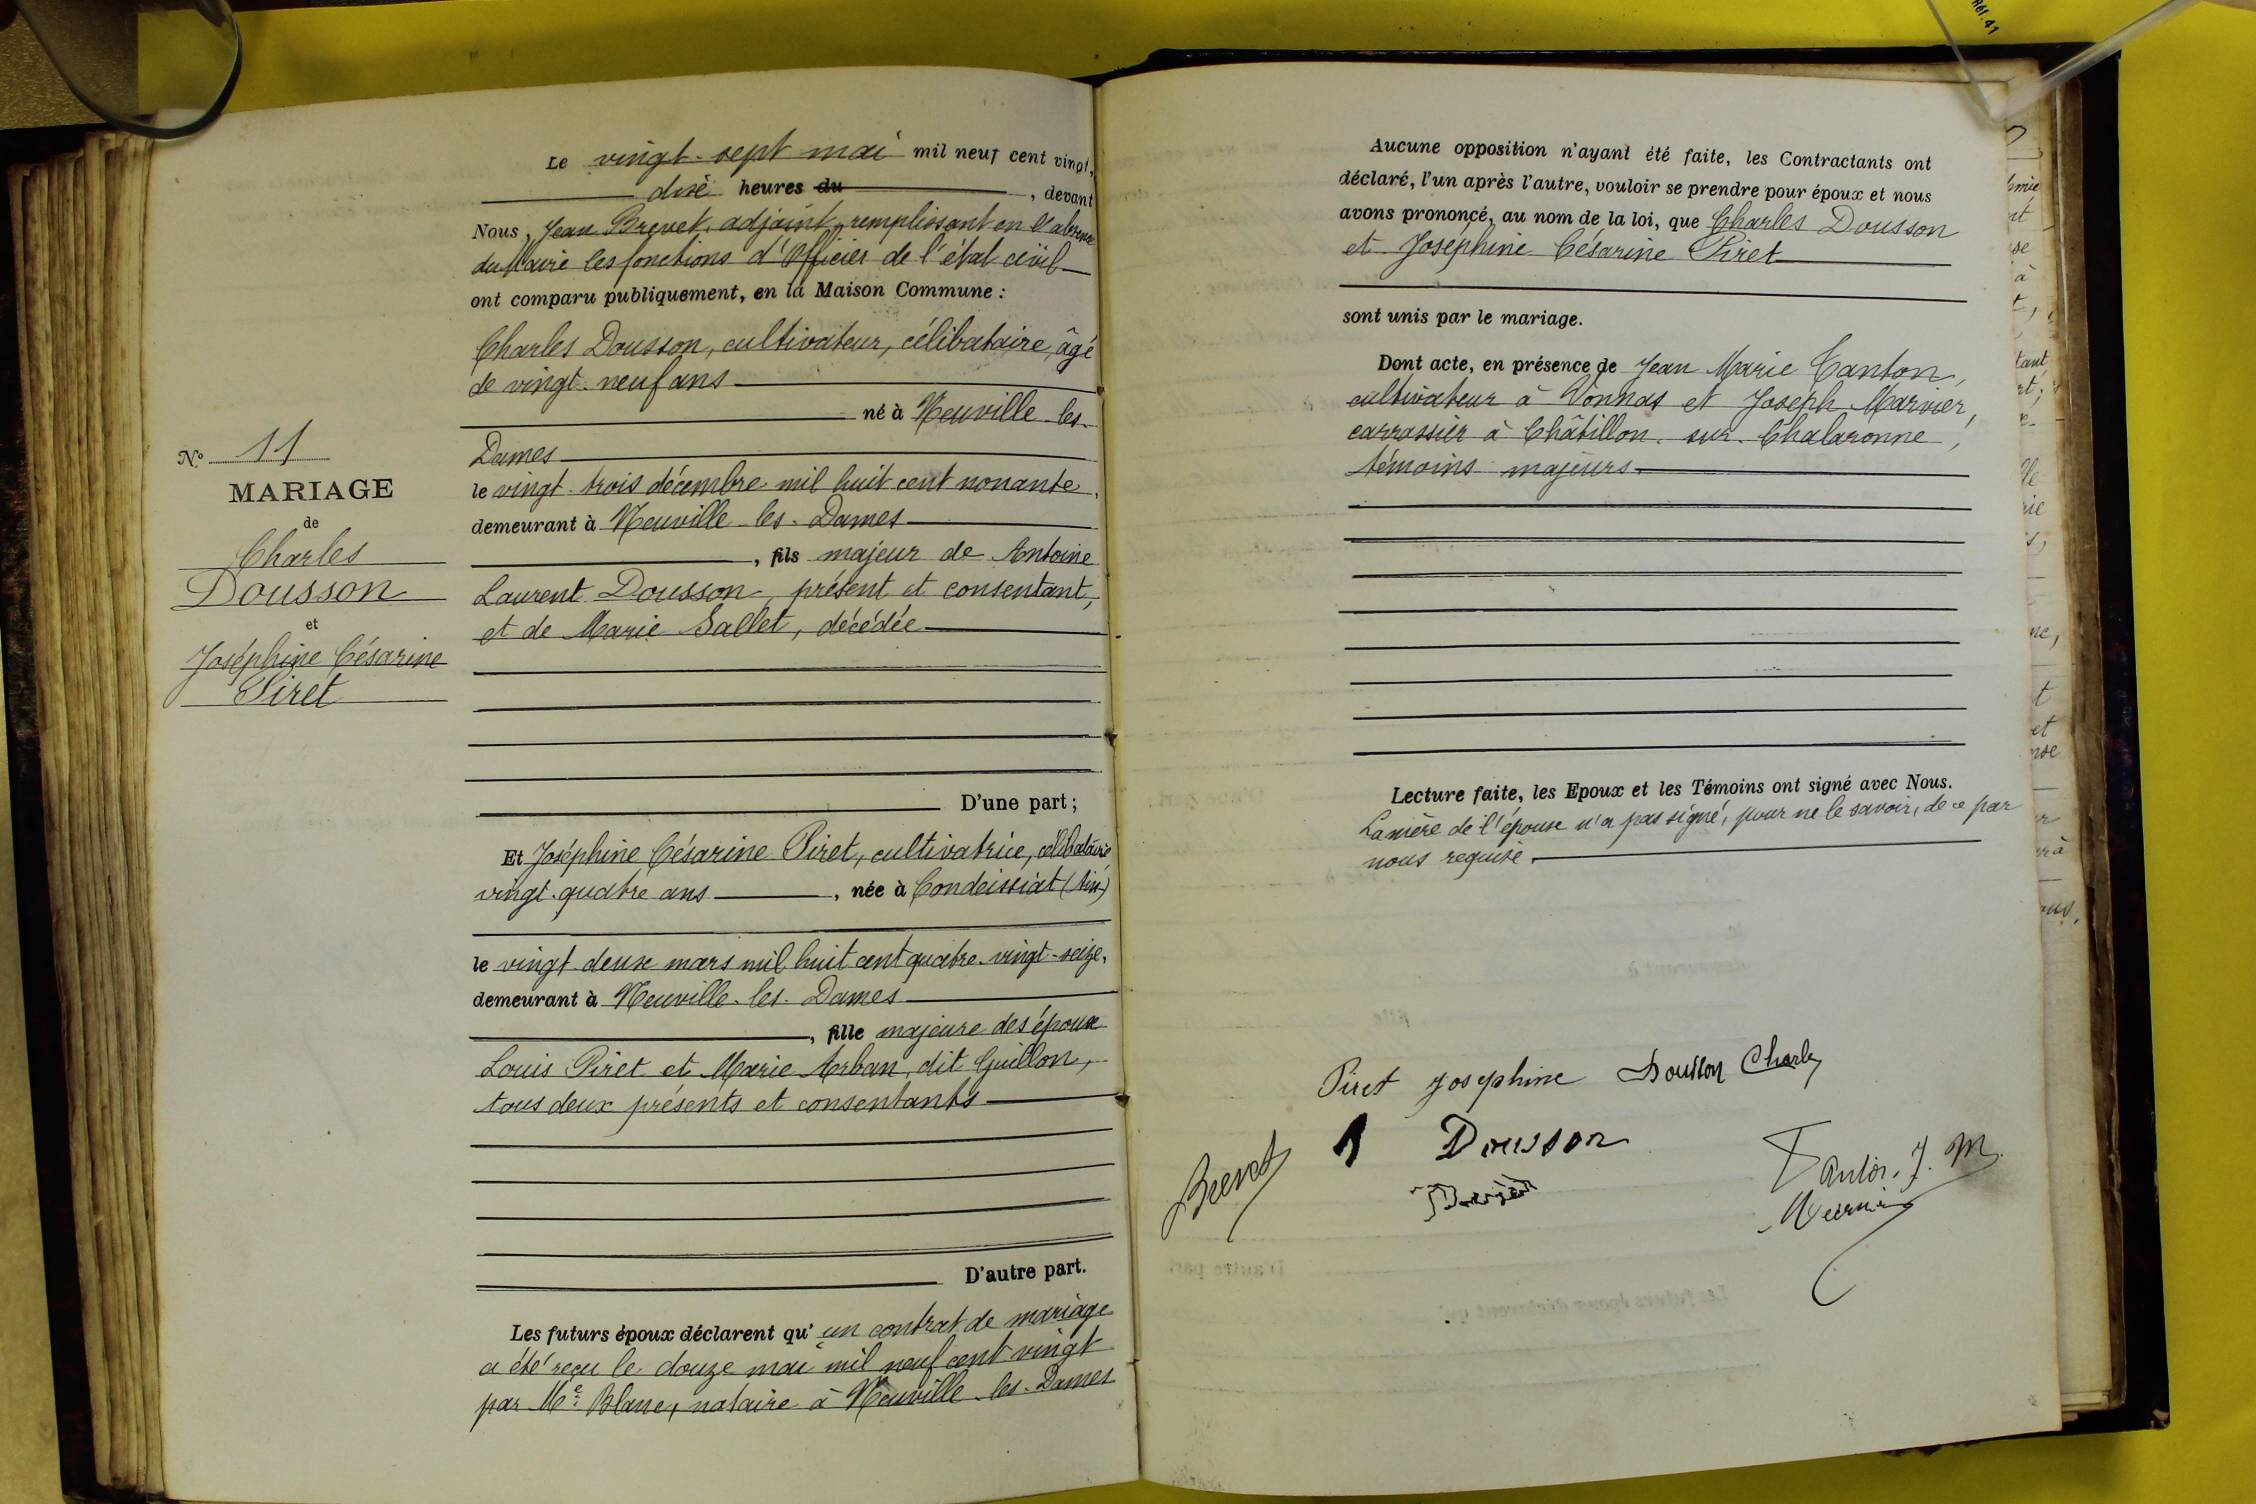 Réf. 41
Le vingt-sept mai mil neuf cent vingt,
dix heures du, devant
Nous, Jean Brevet, adjoint, remplissant en l'absence
du Maire les fonctions d'Officier de l'état civil
ont comparu publiquement, en la Maison Commune :
Charles Dousson, cultivateur, célibataire, âgé
de vingt-neuf ans
né à Neuville-les-
Dames
le vingt-trois décembre mil huit cent nonante,
demeurant à Neuville-les-Dames
, fils majeur de Antoine
Laurent Dousson, présent et consentant,
et de Marie Sallet, décédée
N° 11
MARIAGE
de
Charles
Dousson
et
Joséphine Césarine
Piret
D'une part ;
Et Joséphine Césarine Piret, cultivatrice, célibataire
vingt-quatre ans, née à Condeissiat (Ain)
le vingt-deux mars mil huit cent quatre-vingt-seize,
demeurant à Neuville-les-Dames
, fille majeure des époux
Louis Piret et Marie Arban, dit Guillon,
tous deux présents et consentants
D'autre part.
Les futurs époux déclarent qu' un contrat de mariage
a été reçu le douze mai mil neuf cent vingt
par Me Blanc, notaire à Neuville-les-Dames
Aucune opposition n'ayant été faite, les Contractants ont
déclaré, l'un après l'autre, vouloir se prendre pour époux et nous
avons prononcé, au nom de la loi, que Charles Dousson
et Joséphine Césarine Piret
sont unis par le mariage.
Dont acte, en présence de Jean Marie Tanton,
cultivateur à Vonnas et Joseph Marvier,
carrossier à Châtillon-sur-Chalaronne,
témoins majeurs
Lecture faite, les Epoux et les Témoins ont signé avec Nous.
La mère de l'épouse n'a pas signé, pour ne le savoir, de ce par
nous requise.
Piret Josephine Dousson Charles
Dousson
Brevet
Tanton J. M.